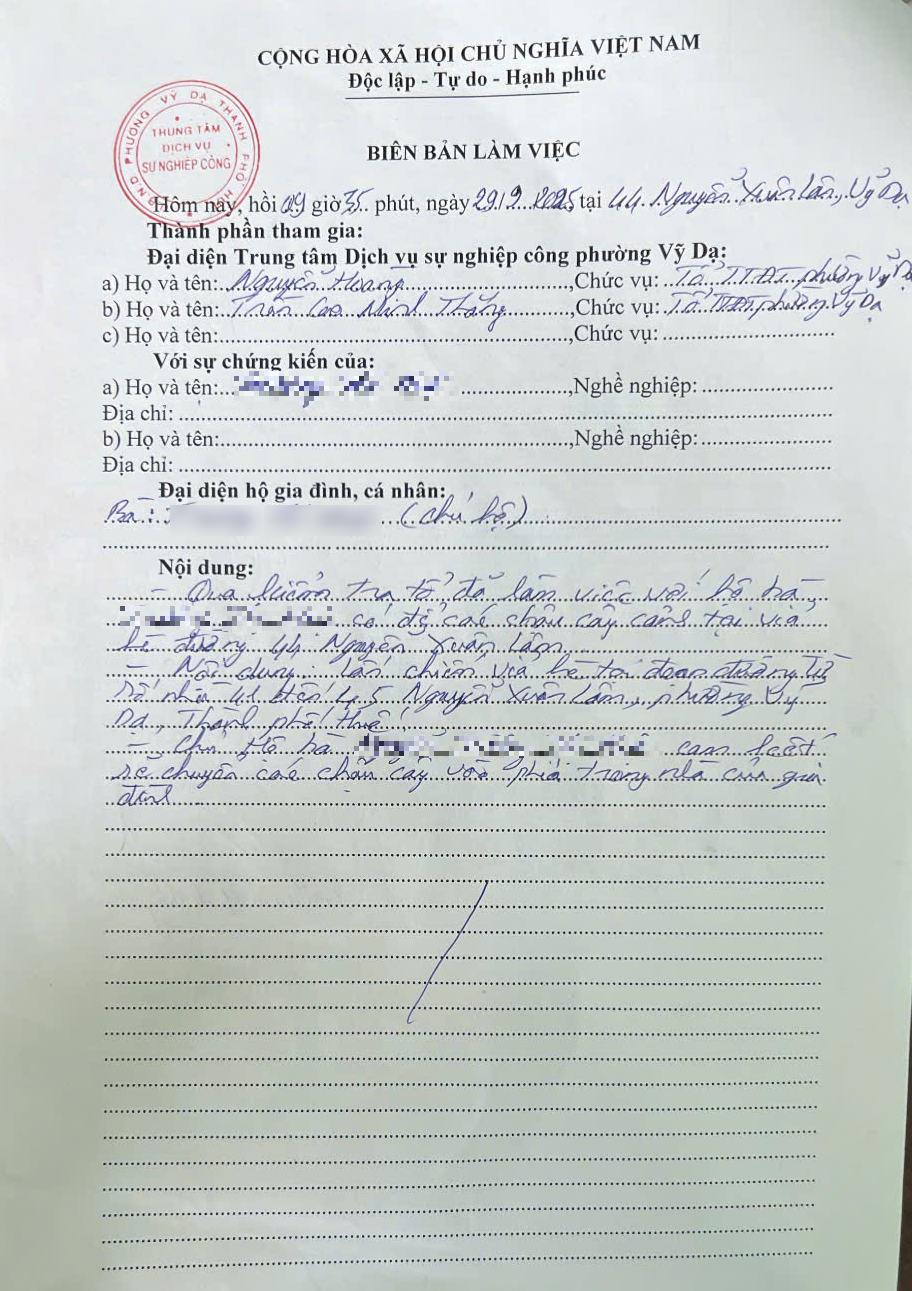 CỘNG HÒA XÃ HỘI CHỦ NGHĨA VIỆT NAM
Độc lập - Tự do - Hạnh phúc
PHƯỜNG VỸ DẠ THÀNH PHỐ
TRUNG TÂM
DỊCH VỤ
SỰ NGHIỆP CÔNG
BIÊN BẢN LÀM VIỆC
Hôm nay, hồi 09 giờ 35 phút, ngày 29/9/2025 tại 44 Nguyễn Xuân Lâm, Vỹ Dạ
Thành phần tham gia:
Đại diện Trung tâm Dịch vụ sự nghiệp công phường Vỹ Dạ:
a) Họ và tên: Nguyễn Hoàng, Chức vụ: Tổ TTĐT phường Vỹ Dạ
b) Họ và tên: Trần Cao Minh Thắng, Chức vụ: Tổ TTĐT phường Vỹ Dạ
c) Họ và tên:, Chức vụ:
Với sự chứng kiến của:
a) Họ và tên:, Nghề nghiệp:
Địa chỉ:
b) Họ và tên:, Nghề nghiệp:
Địa chỉ:
Đại diện hộ gia đình, cá nhân:
Bà: (chủ hộ)
Nội dung:
- Qua kiểm tra tổ đã làm việc với hộ bà
có để các chậu cây cảnh tại vỉa
hè đường 44 Nguyễn Xuân Lâm
- Nội dung: lấn chiếm vỉa hè tại đoạn đường từ
số nhà 41 đến 45 Nguyễn Xuân Lâm, phường Vỹ
Dạ, Thành phố Huế
- Chủ hộ bà cam kết
sẽ chuyển các chậu cây vào phía trong nhà của gia
đình